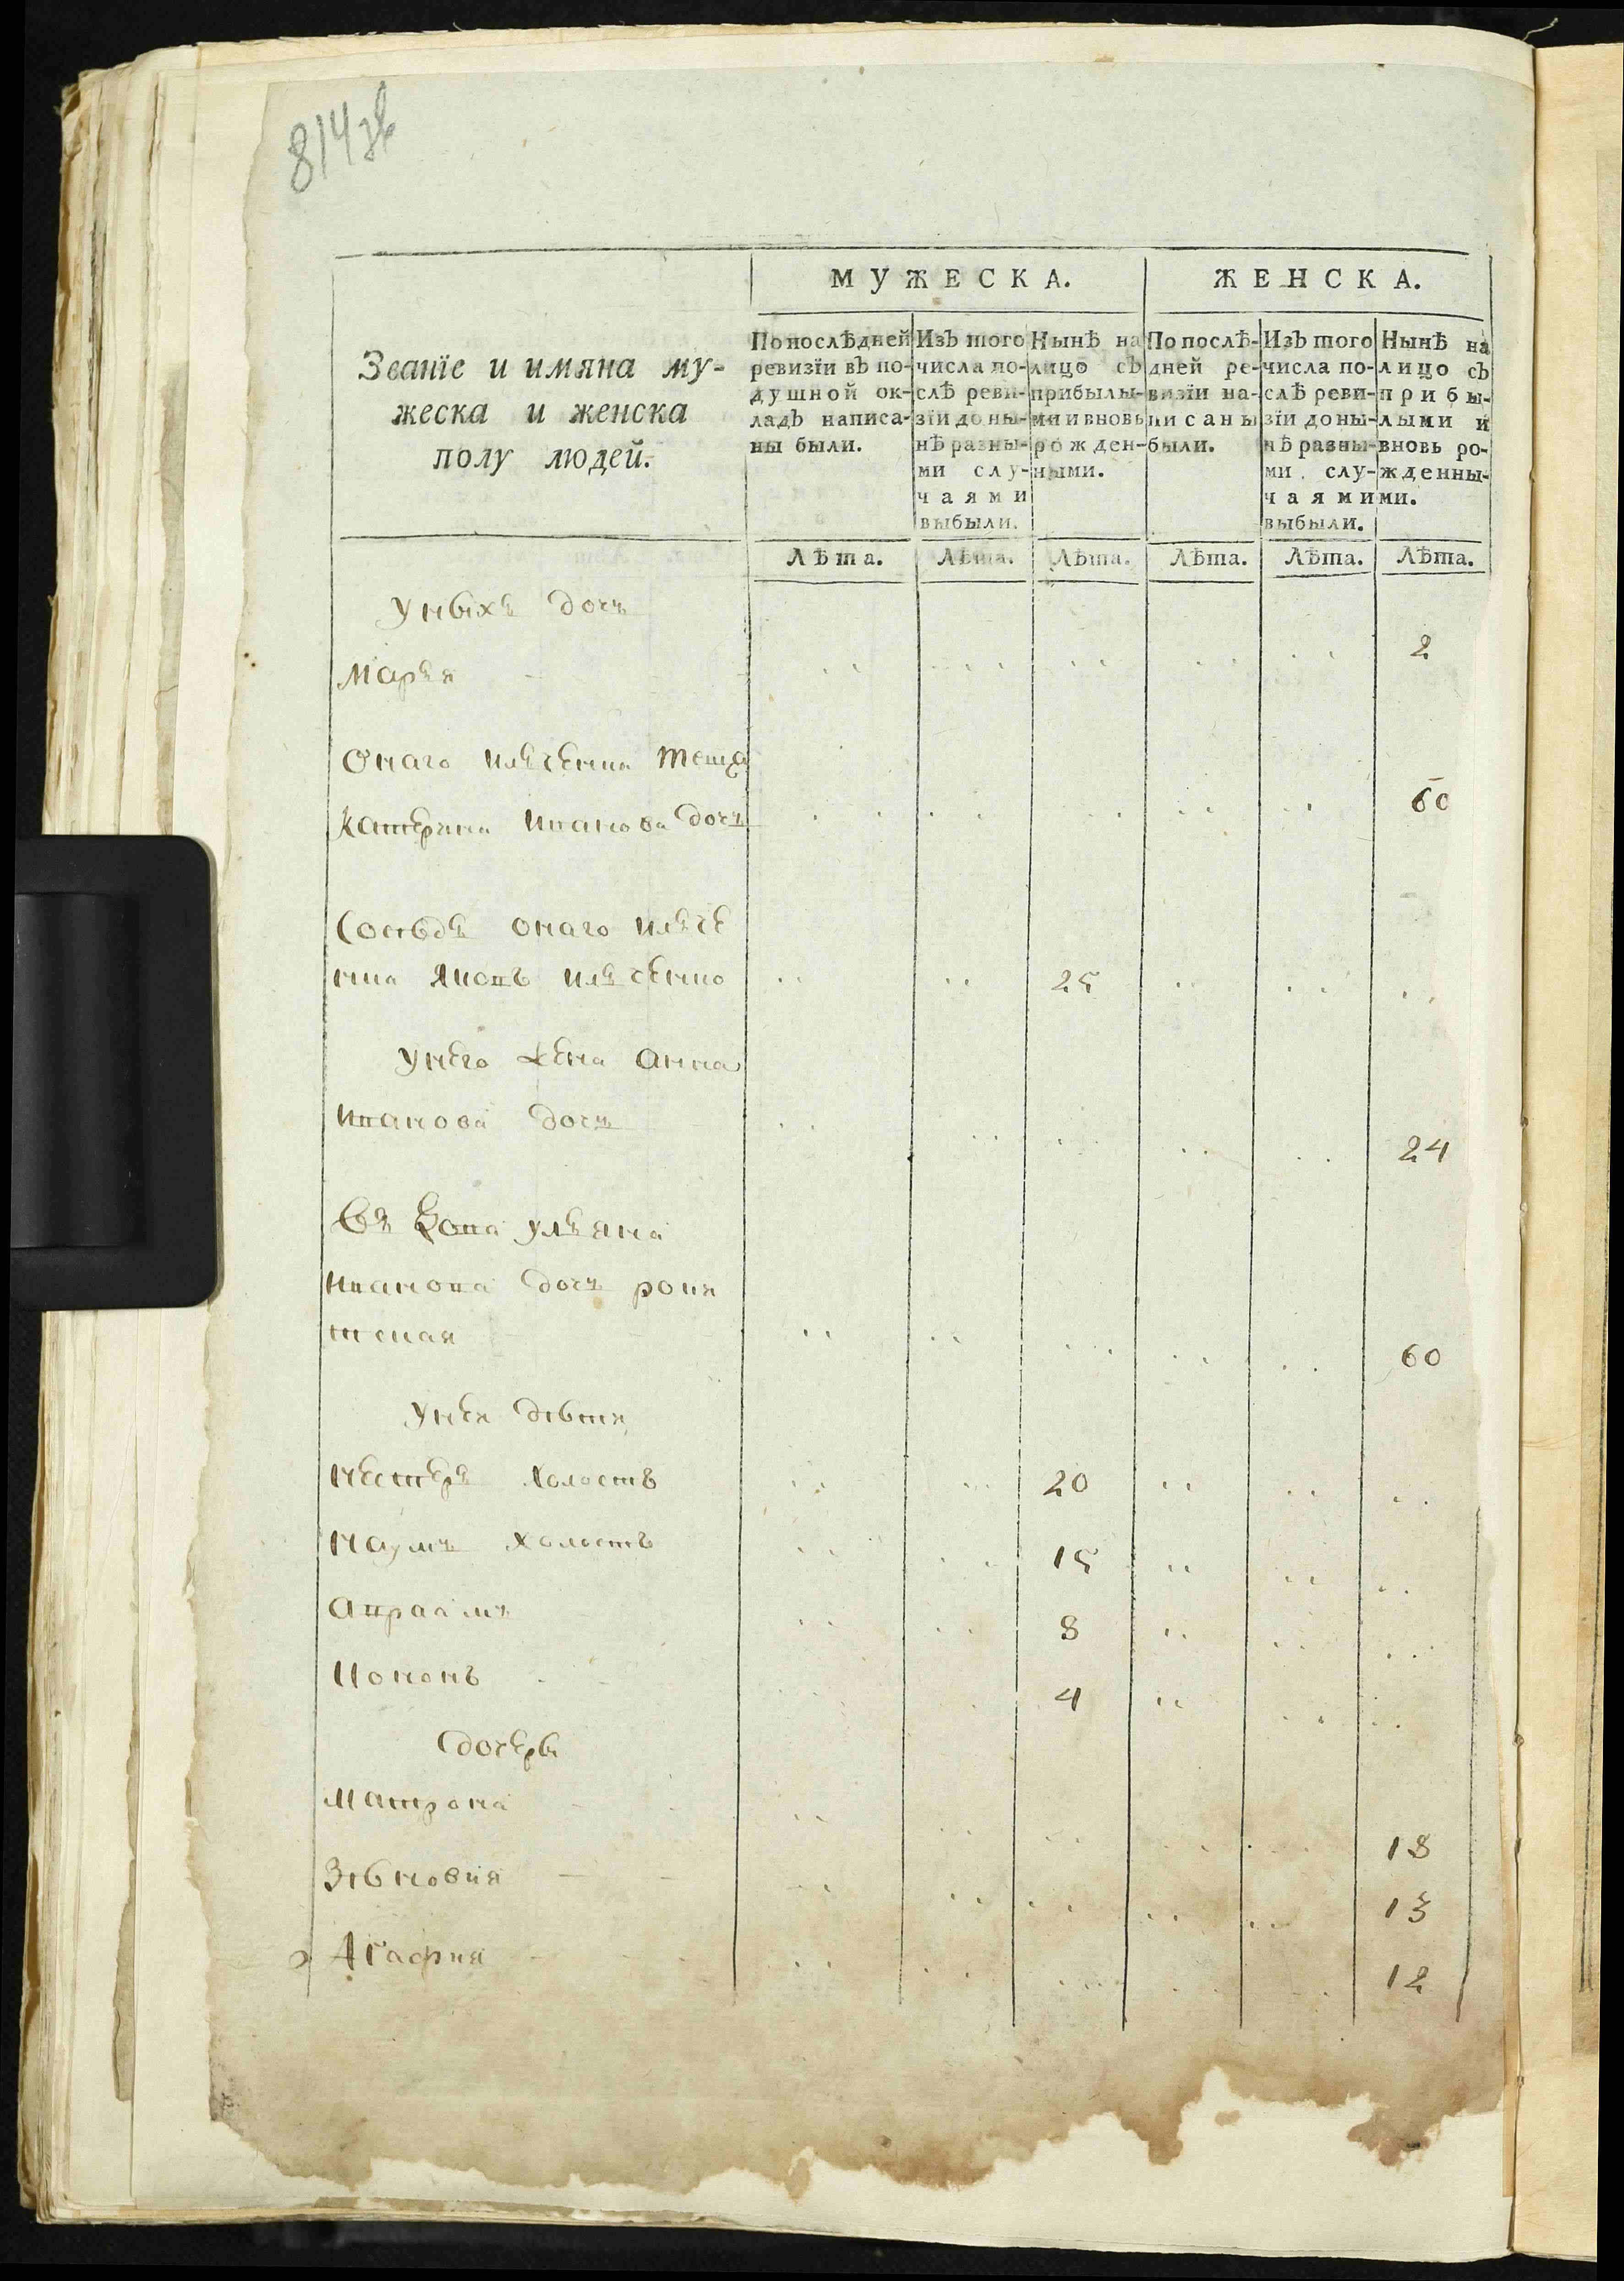 814 зв
МУЖЕСКА. ЖЕНСКА.
Званїе и имяна му-
жеска и женска
полу людей.
По послѣдней
ревизїи въ по-
душной ок-
ладъ написа-
ны были.
Изъ того
числа по-
слѣ реви-
зїи до ны-
нѣ разны-
ми слу-
чаями
выбыли.
Нынѣ на
лицо съ
прибылы-
ми и вновь
рожден-
ными.
По послѣ-
дней ре-
визїи на-
писаны
были.
Изъ того
числа по-
слѣ реви-
зїи до ны-
нѣ разны-
ми слу-
чаями
выбыли.
Нынѣ на
лицо съ
прибы-
лыми и
вновь ро-
жденны-
ми.
Лѣта. Лѣта. Лѣта. Лѣта. Лѣта. Лѣта.
Уныхъ дочь
Марья 2
Онаго Ильченка теща
Катерина Иванова дочь 60
Соседъ онаго Ильче
нка Яковъ Ильченко 25
Унего жена Анна
Иванова дочь 24
Ульяна
Иванова дочь 60
Унея дѣти
Нестеръ холостъ 20
Наумъ холостъ 15
Авраамъ 8
Кононъ 4
дочери
Матрона 18
Зѣновия 13
Агафия 12